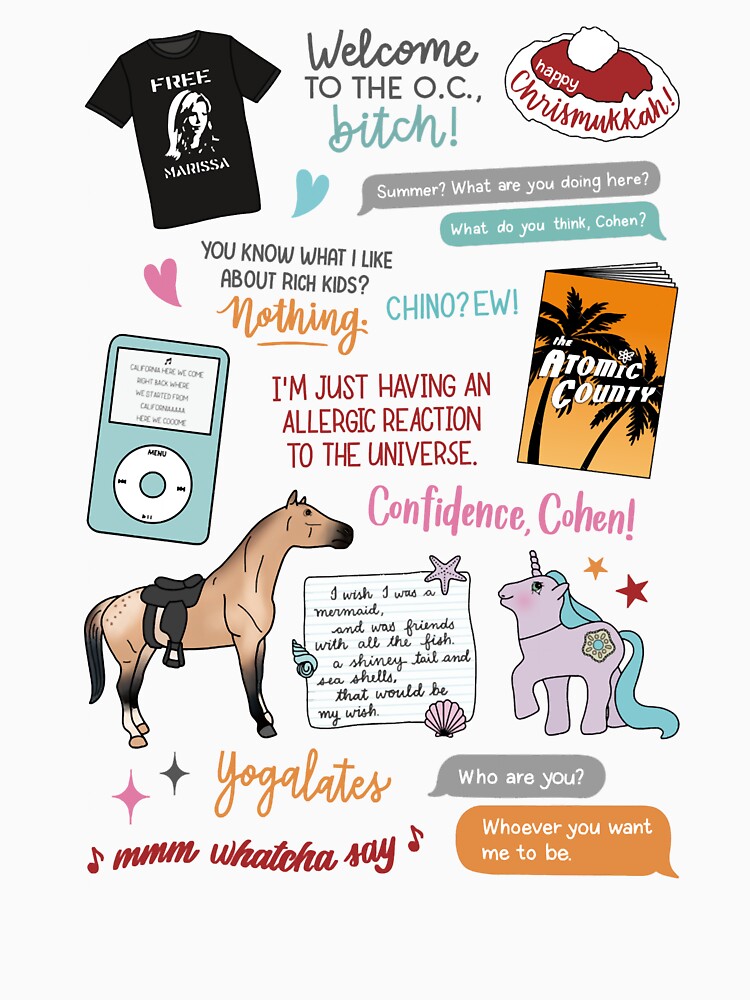 FREE
MARISSA
Welcome
TO THE O.C.,
bitch!
happy
Chrismukkah!
Summer? What are you doing here?
What do you think, Cohen?
YOU KNOW WHAT I LIKE
ABOUT RICH KIDS?
Nothing.
CHINO? EW!
the
ATOMIC
COUNTY
CALIFORNIA HERE WE COME
RIGHT BACK WHERE
WE STARTED FROM
CALIFORNIAAAAA
HERE WE COOOME
MENU
I'M JUST HAVING AN
ALLERGIC REACTION
TO THE UNIVERSE.
Confidence, Cohen!
I wish I was a
mermaid,
and was friends
with all the fish.
a shiney tail and
sea shells,
that would be
my wish.
Yogalates
Who are you?
Whoever you want
me to be.
mmm whatcha say